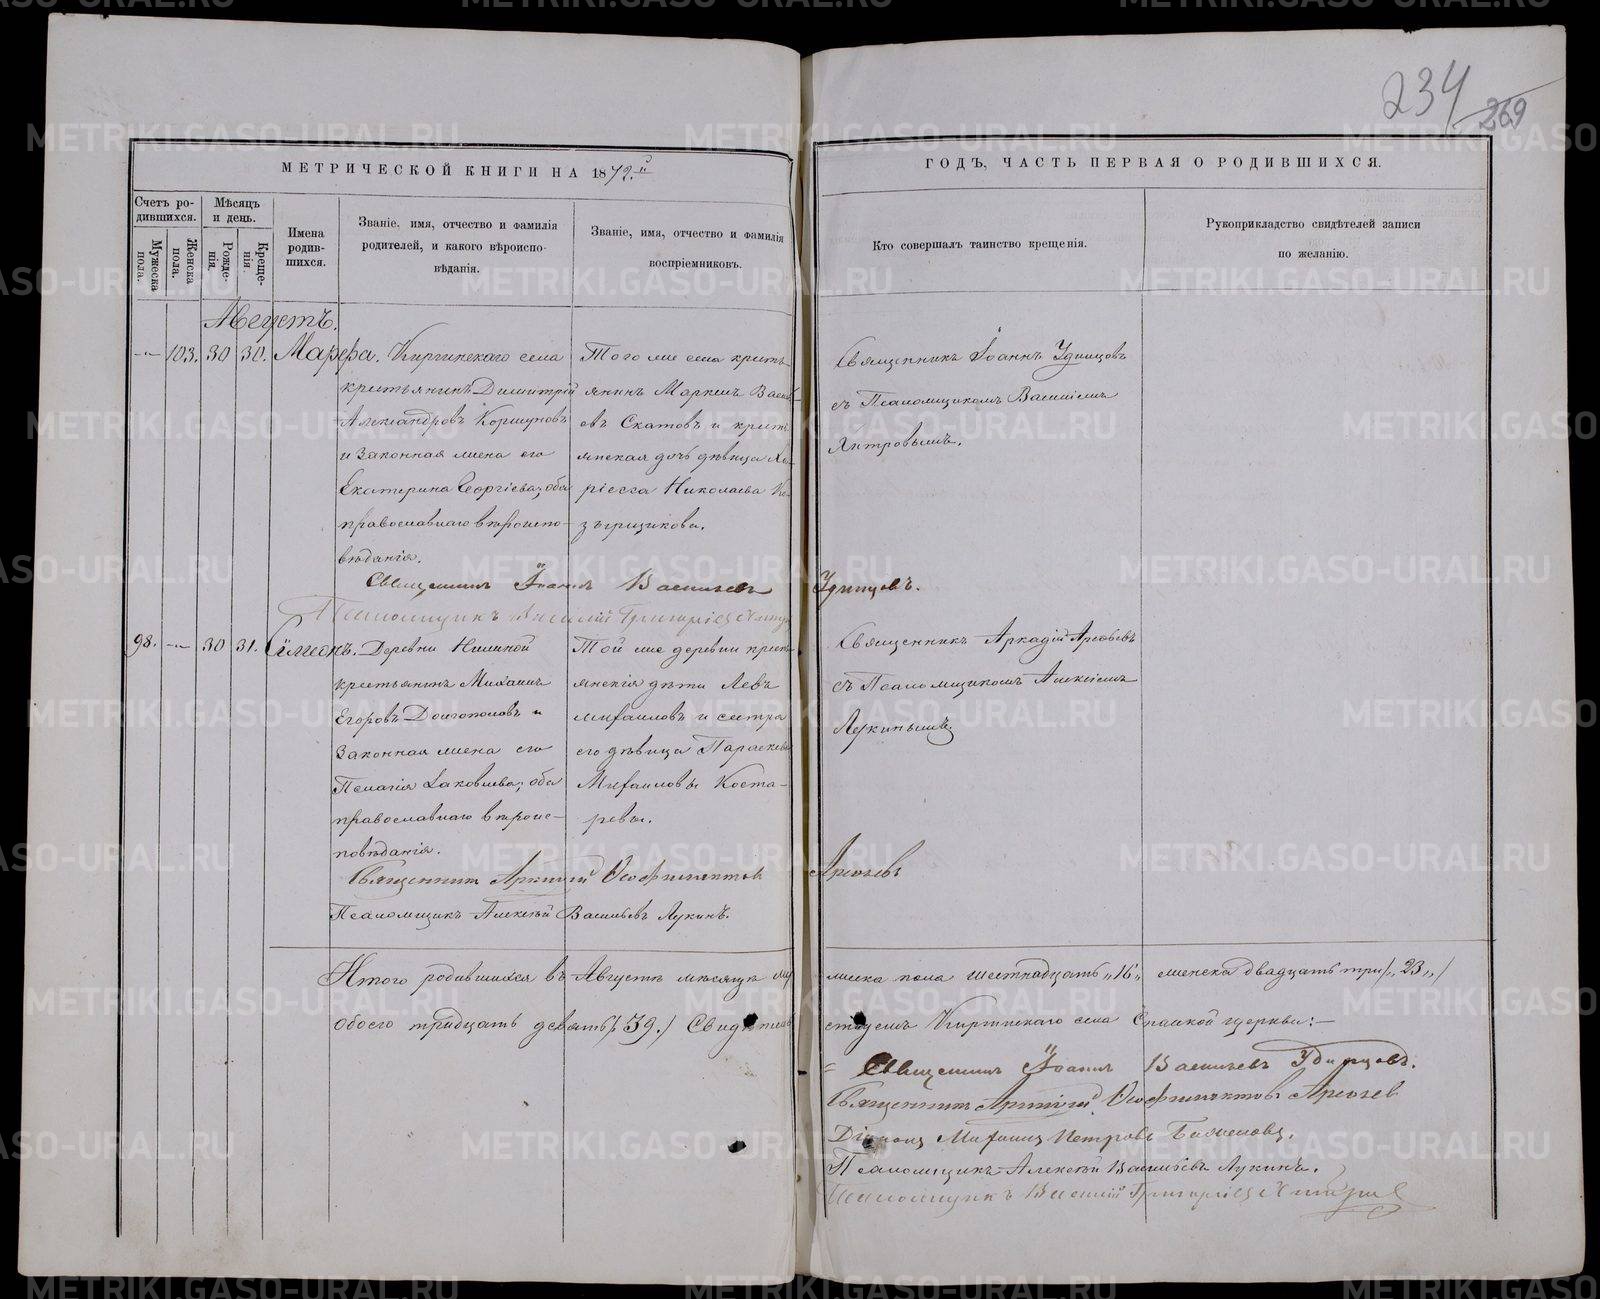 234 269
МЕТРИЧЕСКОЙ КНИГИ НА 1872й
ГОДЪ, ЧАСТЬ ПЕРВАЯ О РОДИВШИХСЯ.
Счетъ родившихся.
Мужеска пола.
Женска пола.
Мѣсяцъ и день.
Рожденія.
Крещенія.
Имена родившихся.
Званіе, имя, отчество и фамилія
родителей, и какого вѣроиспо-
вѣданія.
Званіе, имя, отчество и фамилія
воспріемниковъ.
Кто совершалъ таинство крещенія.
Рукоприкладство свидѣтелей записи
по желанію.
Августъ.
103. 30 30. Марфа.
Киргинскаго села
крестьянинъ Димитрій
Александровъ Коршуновъ
и законная жена его
Екатерина Георгіева; оба
православнаго вѣроиспо-
вѣданія.
Того же села кресть
янинъ Маркелъ
евъ Скатовъ и кресть
янская дочь дѣвица
Николаева
Священникъ Іоаннъ Удинцовъ
съ Псаломщикомъ Василіемъ
Хитровымъ.
Священникъ Іоаннъ Васильевъ Удинцовъ.
Псаломщикъ Василій Григорьев Хитр
98. 30 31. Симеонъ.
Деревни
крестьянинъ Михаилъ
Егоровъ Долгополовъ и
законная жена его
Пелагія Іаковлева; оба
православнаго вѣроис-
повѣданія.
Той же деревни кресть
янскія дѣти Левъ
Михаиловъ и сестра
его дѣвица Параскева
Михаиловы Коста-
ревы.
Священникъ Аркадій Арефьевъ
съ Псаломщикомъ Алексіемъ
Лукинымъ
Священникъ Аркадій Ѳеофилактов Арефьевъ
Псаломщикъ Алексѣй Васильевъ Лукинъ.
Итого родившихся въ Августѣ мѣсяцѣ му
жеска пола шестнадцать „16„ женска двадцать три /„23„/
обоего тридцать девять /39./ Свидѣтель
ствуемъ Киргинскаго села Спасской церкви:—
Священникъ Іоаннъ Васильевъ Удинцовъ.
Священникъ Аркадій Ѳеофилактовъ Арефьев
Діаконъ Михаилъ Петровъ Баженовъ.
Псаломщикъ Алексѣй Васильевъ Лукинъ.
Псаломщикъ Василій Григорьев Хитров
METRIKI.GASO-URAL.RU